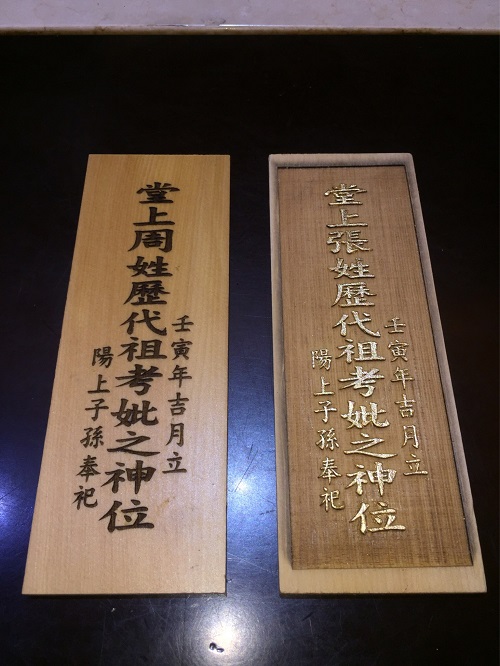 壬寅年吉月立
堂上周姓歷代祖考妣之神位
陽上子孫奉祀
壬寅年吉月立
堂上張姓歷代祖考妣之神位
陽上子孫奉祀